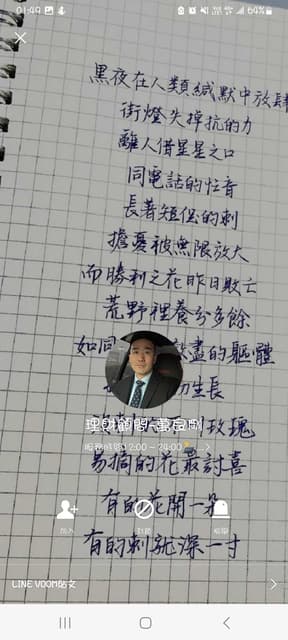 01:49
64%
黑夜在人類緘默中放肆
街燈失掉抗的力
離人借星星之口
同電話的忙音
長著短促的刺
擔憂被無限放大
而勝利之花昨日敗亡
荒野裡養分多餘
如同 盡的軀體
生長
玫瑰
易摘的花最討喜
理財顧問
服務時間12:00 - 24:00
有的花開一朵
加入
聊天
有的刺就深一寸
LINE VOOM貼文